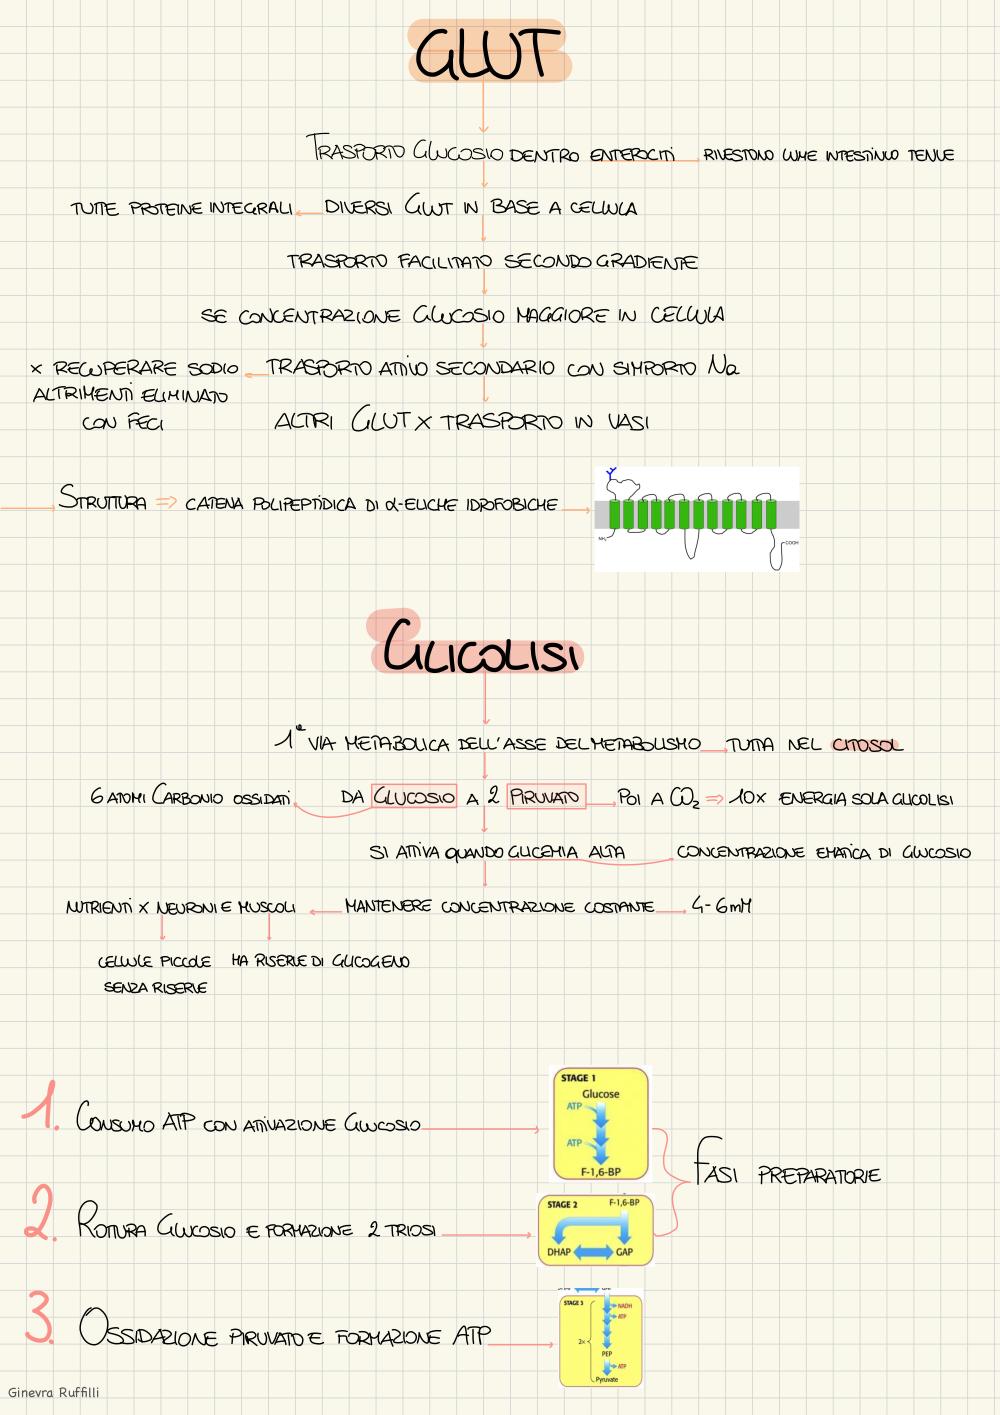 GLUT
TRASPORTO GLUCOSIO DENTRO ENTEROCITI RIVESTONO LUME INTESTINO TENUE
TUTTE PROTEINE INTEGRALI DIVERSI GLUT IN BASE A CELLULA
TRASPORTO FACILITATO SECONDO GRADIENTE
SE CONCENTRAZIONE GLUCOSIO MAGGIORE IN CELLULA
x RECUPERARE SODIO TRASPORTO ATTIVO SECONDARIO CON SIMPORTO Na
ALTRIMENTI ELIMINATO
CON FECI ALTRI GLUT x TRASPORTO IN VASI
STRUTTURA ⇒ CATENA POLIPEPTIDICA DI α-ELICHE IDROFOBICHE
NH₂ COOH
GLICOLISI
1ª VIA METABOLICA DELL'ASSE DEL METABOLISMO TUTTA NEL CITOSOL
6 ATOMI CARBONIO OSSIDATI DA GLUCOSIO A 2 PIRUVATO POI A CO₂ ⇒ 10x ENERGIA SOLA GLICOLISI
SI ATTIVA QUANDO GLICEMIA ALTA CONCENTRAZIONE EMATICA DI GLUCOSIO
NUTRIENTI x NEURONI E MUSCOLI MANTENERE CONCENTRAZIONE COSTANTE 4-6mM
CELLULE PICCOLE MA RISERVE DI GLICOGENO
SENZA RISERVE
STAGE 1
Glucose
ATP
ATP
F-1,6-BP
1. CONSUMO ATP CON ATTIVAZIONE GLUCOSIO
FASI PREPARATORIE
STAGE 2 F-1,6-BP
DHAP GAP
2. ROTTURA GLUCOSIO E FORMAZIONE 2 TRIOSI
STAGE 3
NADH
ATP
2x
PEP
ATP
Pyruvate
3. OSSIDAZIONE PIRUVATO E FORMAZIONE ATP
Ginevra Ruffilli